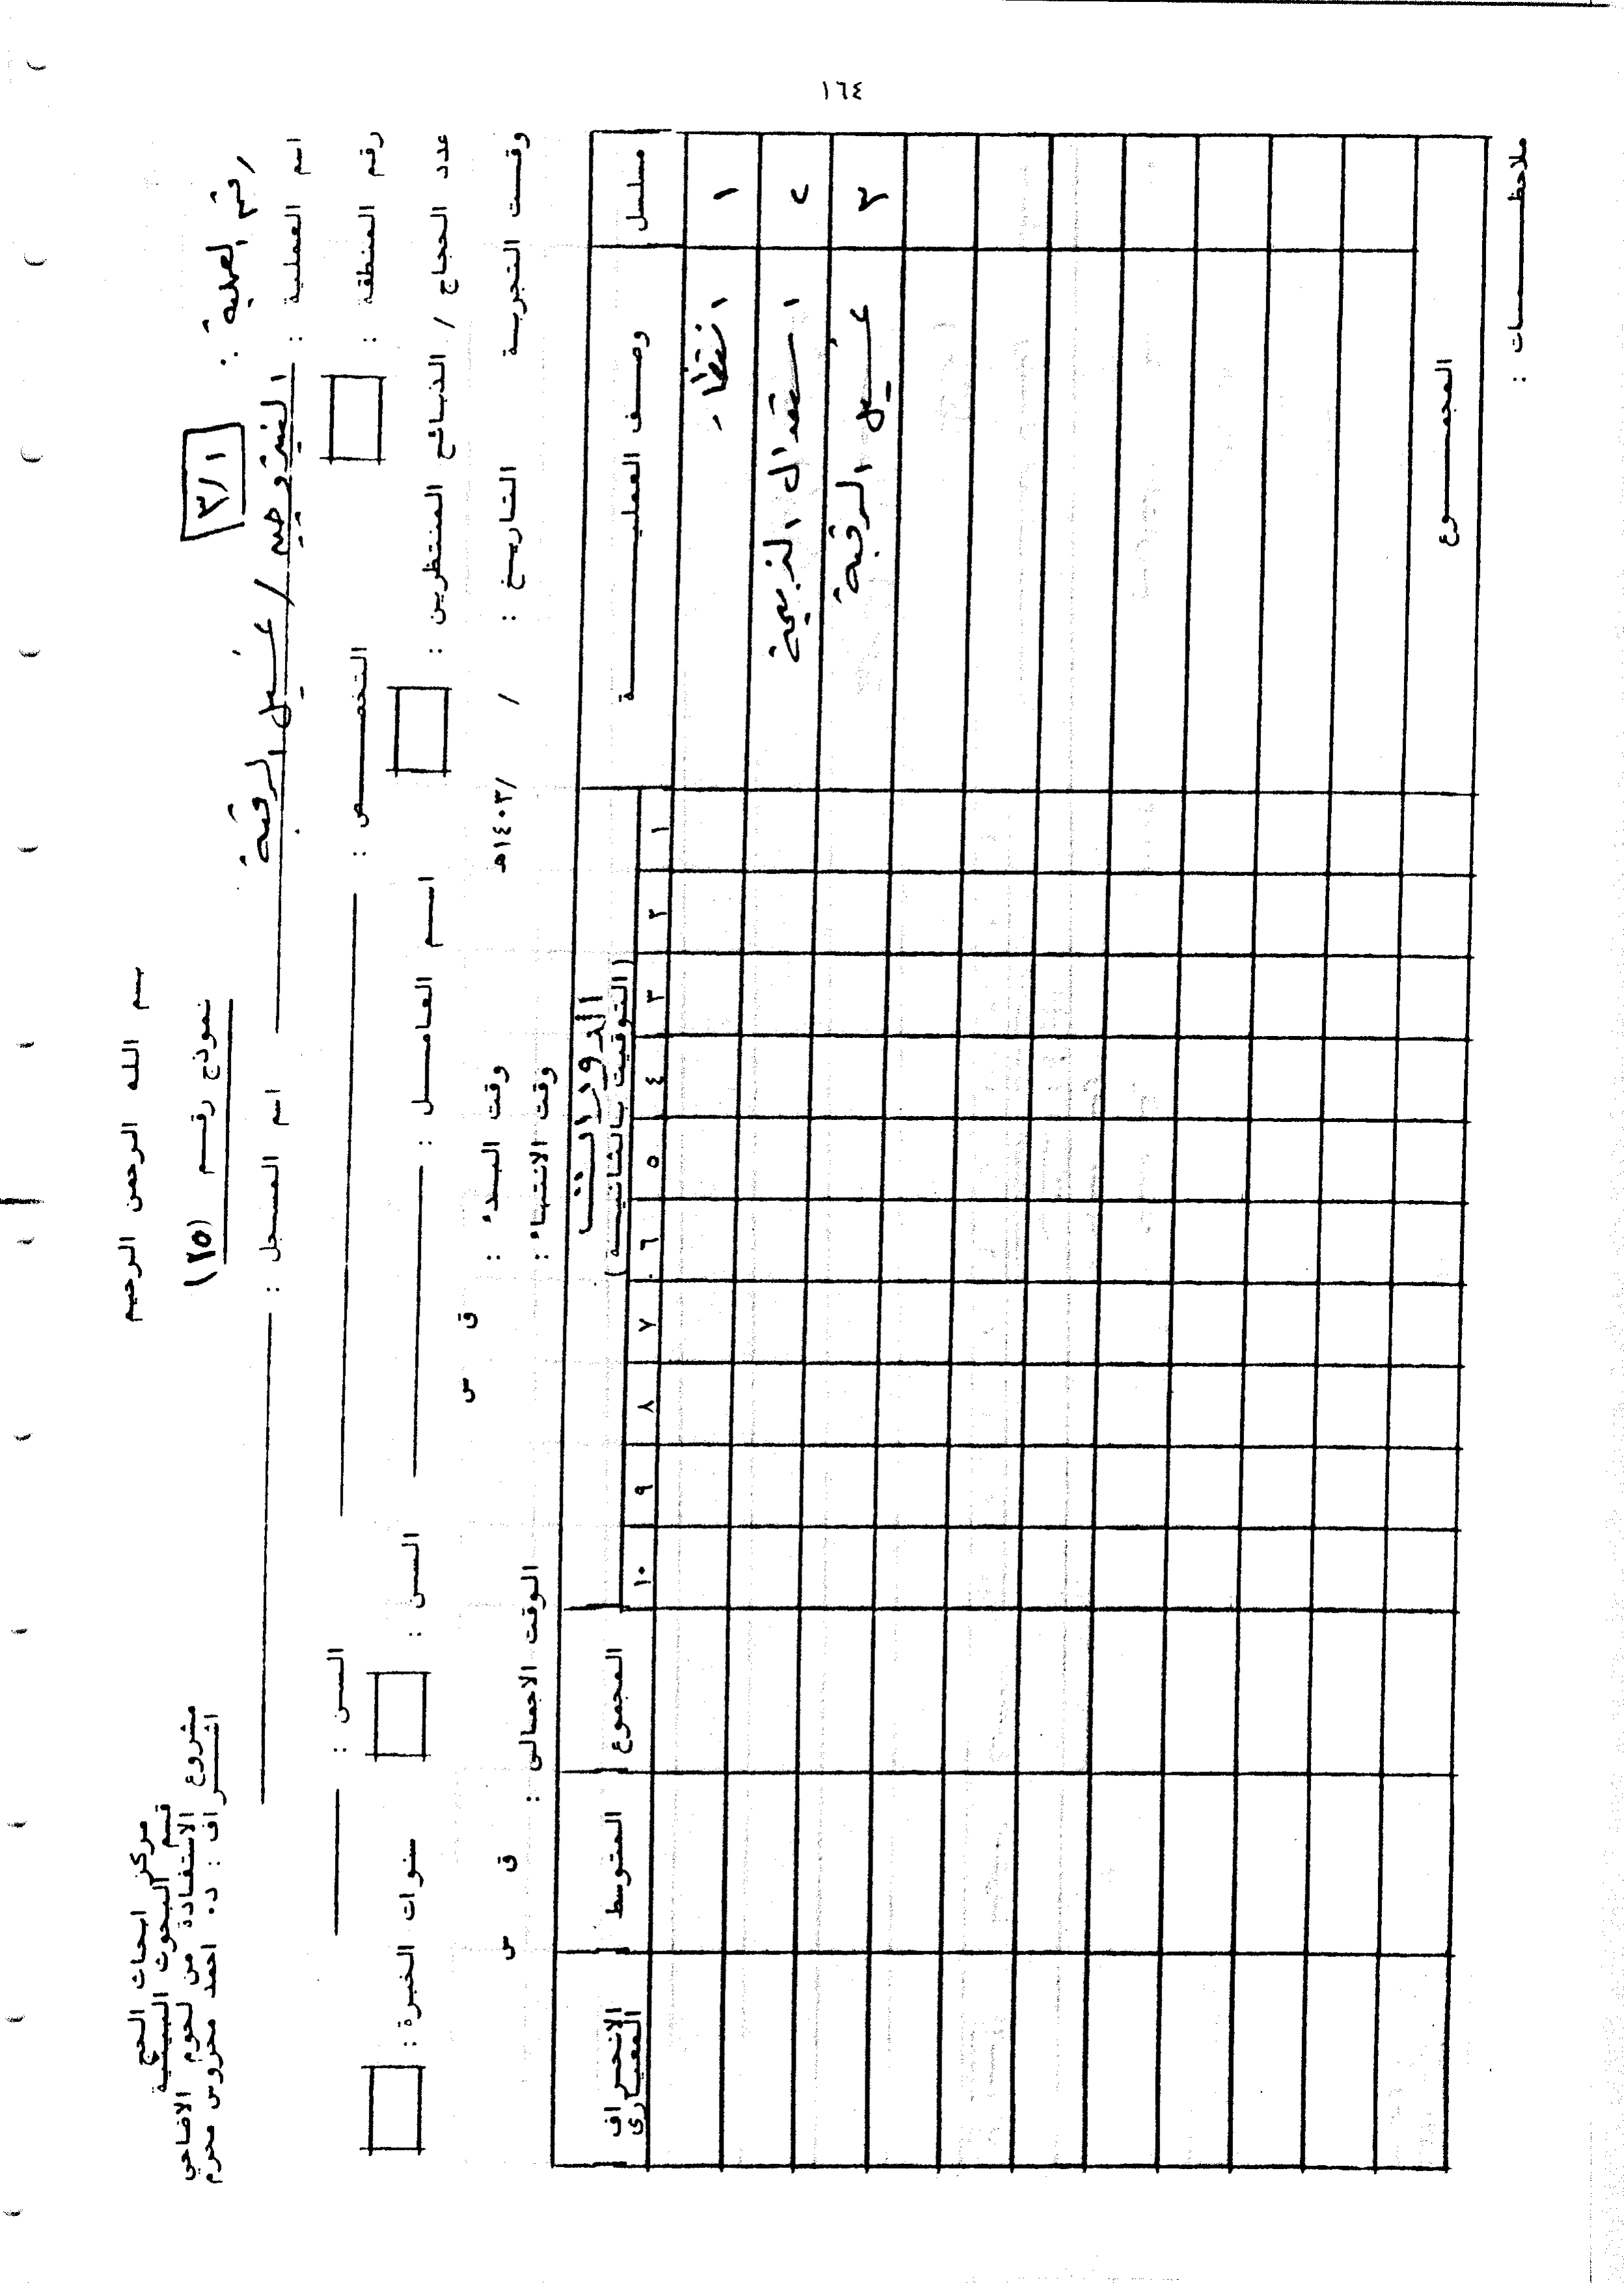 ١٦٤
بسم الله الرحمن الرحيم
مركز ابحاث الحج
قسم البحوث البيئية
مشروع الاستفادة من لحوم الاضاحي
اشراف : د. احمد محروس محرم
نموذج رقم (٢٥)
رقم العملية : ٣/١
اسم العملية : / غسيل الرقبة
اسم المسجل :
رقم المنطقة :
التخصص :
السن :
عدد الحجاج / الذبائح المنتظرين :
اسم العامل :
السن :
سنوات الخبرة :
وقت التجربة
التاريخ : / / ١٤٠٣هـ
وقت البدء : ق س
وقت الانتهاء :
الوقت الاجمالى : ق س
مسلسل وصف العملية الدورات (التوقيت بالثانية) المجموع المتوسط الانحراف المعيارى
١ ٢ ٣ ٤ ٥ ٦ ٧ ٨ ٩ ١٠
١ انتظار
٢ استقبال الذبيحة
٣ غسيل الرقبة
المجموع
ملاحظات :